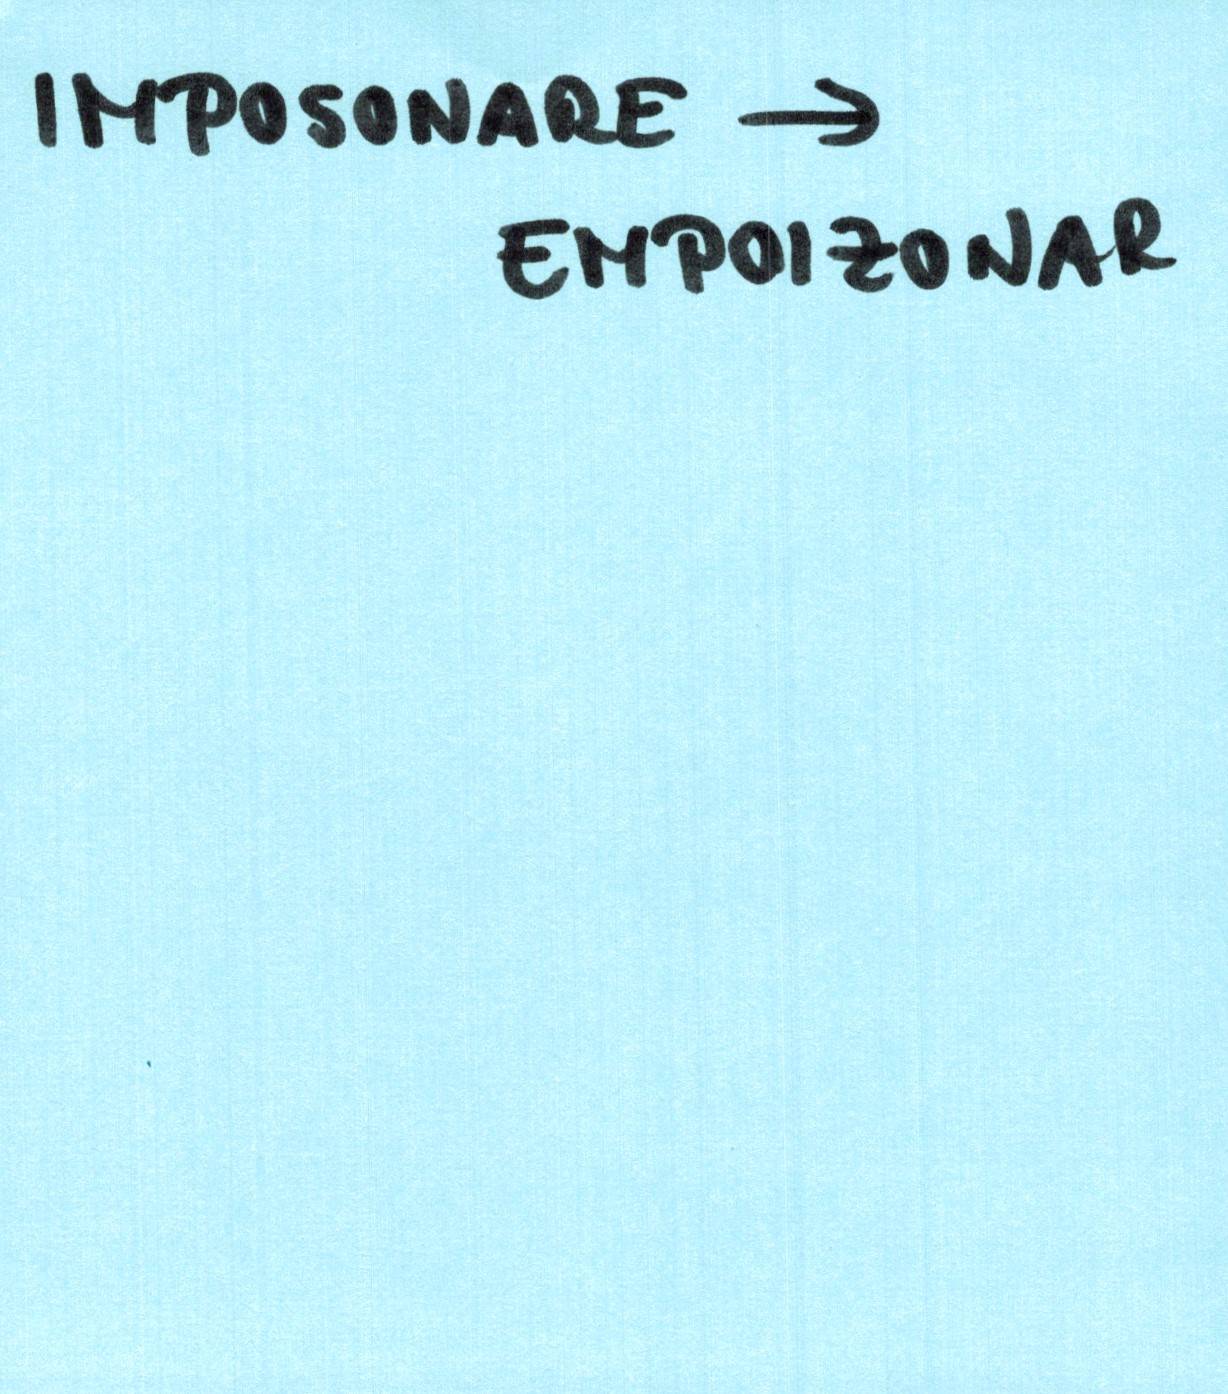 IMPOSONARE →
EMPOIZONAR